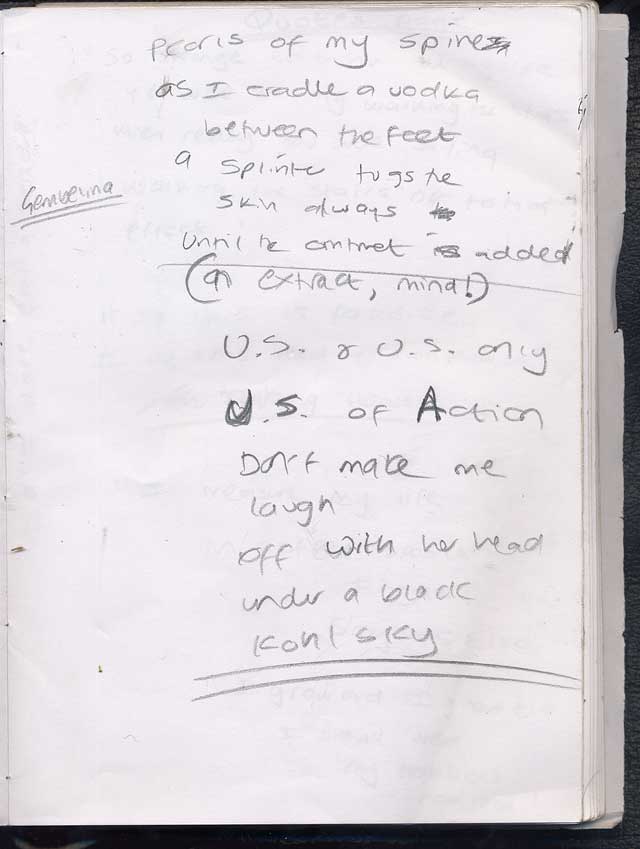 pearls of my spine
as I cradle a vodka
between the feet
a splinte tugs the
skin always
until the added
(an extract, mind!)
U.S. & U.S. only
U.S. of Action
Don't make me
laugh
off with her head
under a black
kohl sky